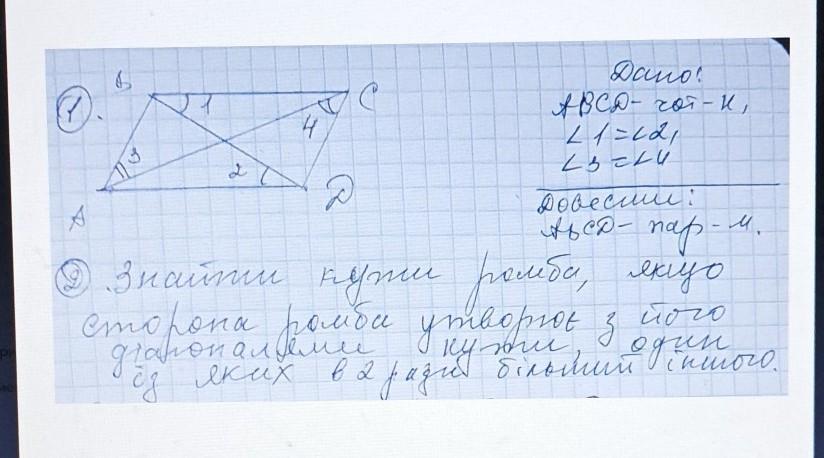 1.
B
C
1
4
3
2
A
D
Дано:
ABCD- чот-к,
∠1=∠2,
∠3=∠4
Довести:
ABCD- пар-м.
2. Знайти кути ромба, якщо
сторона ромба утворює з його
діагоналями кути, один
із яких в 2 рази більший іншого.